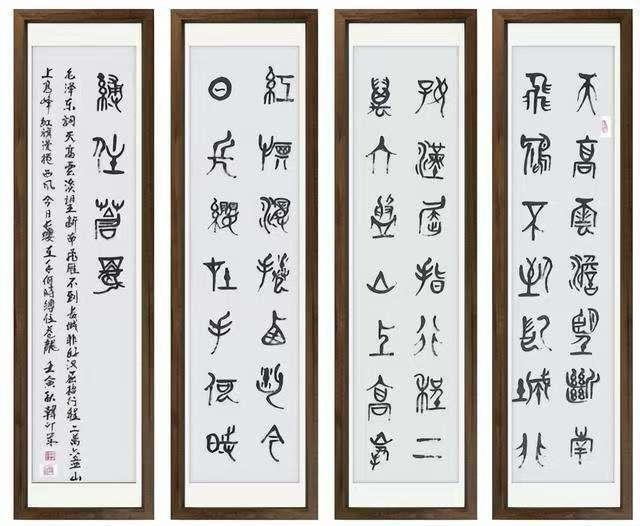 天高雲澹望斷南
飛鴈不到長城非
好漢屈指行程二
萬六盤山上高峯
紅旗漫捲西風今
日長纓在手何時
縛住蒼龍
毛泽东詞天高雲淡望断南飛雁不到长城非好汉屈指行程二萬六盘山
上高峰紅旗漫捲西风今日长缨在手何時縛住苍龍壬寅秋韩